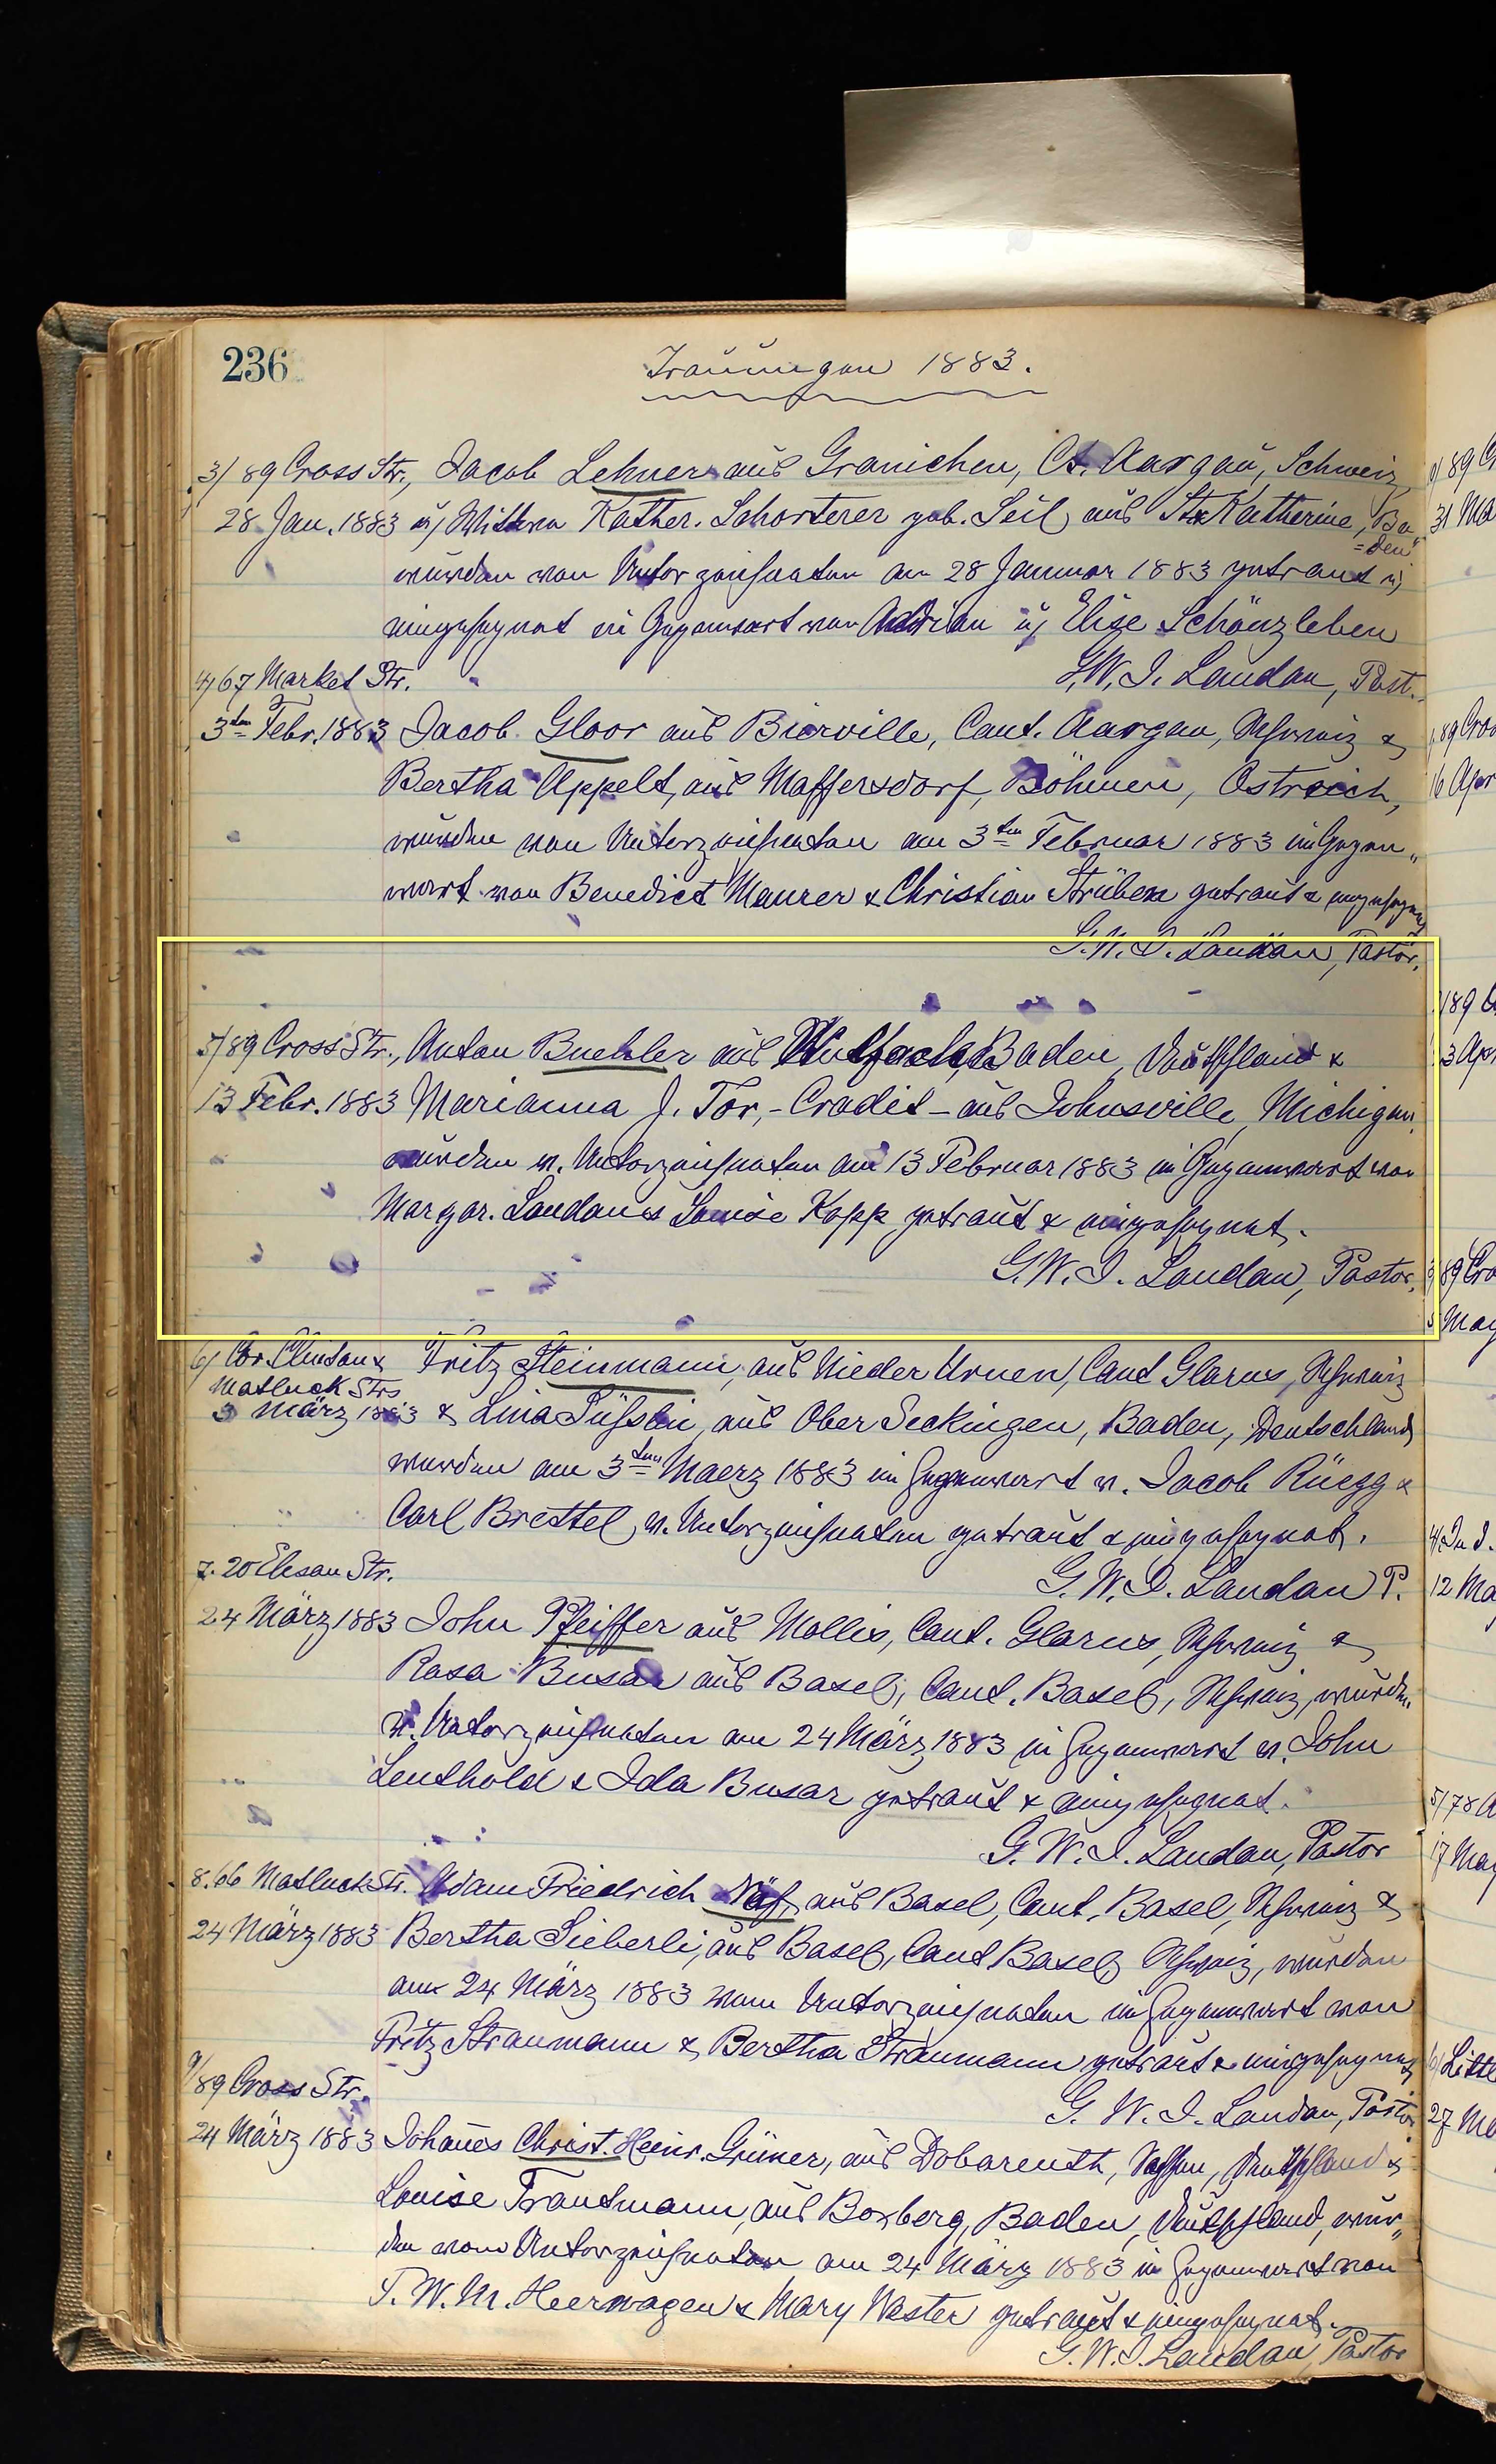 236
Trauungen 1883.
3/ 89 Cross Str., Jacob Lehner aus Granichen, Ct. Aargau, Schweiz,
28 Jan. 1883 u/ Wittwe Kather. Schorterer geb. Seil aus St. Katherine, Ba
=den
wurden von Unterzeichneten am 28 Januar 1883 getraut u/
eingesegnet in Gegenwart von Adrian u/ Elise Schönzleben
G. W. I. Landau, Past.
4/ 67 Market Str.
3ten Febr. 1883 Jacob Gloor aus Birrville, Cant. Aargau, Schweiz &
Bertha Appelt, aus Maffersdorf, Böhmen, Ostreich,
wurden von Unterzeichneten am 3ten Februar 1883 in Gegen„
wart von Benedict Maurer & Christian Strüben getraut & eingesegnet
G. W. I. Landau, Pastor.
5/ 89 Cross Str., Anton Buehler aus Baden, Deutschland &
13 Febr. 1883 Marianna J. Tor, - Cradit - aus Johnsville, Michigan,
wurden v. Unterzeichneten am 13 Februar 1883 in Gegenwart von
Margar. Landau & Louise Kopp getraut & eingesegnet.
G. W. I. Landau, Pastor.
6/ Cor. Clinton & Fritz Steinmann, aus Nieder Urnen, Cant Glarus, Schweiz
Matluck Strs
3 März 1883 & Lina Süsslin, aus Ober Seckingen, Baden, Deutschland
wurden am 3ten Maerz 1883 in Gegenwart v. Jacob Rüegg &
Carl Brettel, v. Unterzeichneten getraut & eingesegnet.
G. W. I. Landau P.
7. 20 Str.
24 März 1883 John Pfeiffer aus Mollis, Cant. Glarus, Schweiz &
Rosa Busar aus Basel, Cant. Basel, Schweiz, wurden
v. Unterzeichneten am 24 März 1883 in Gegenwart v. John
Leuthold & Ida Busar getraut & eingesegnet.
G. W. I. Landau, Pastor
8. 66 Matluck Str. Adam Friedrich Näf, aus Basel, Cant. Basel, Schweiz &
24 März 1883 Bertha Sieberli, aus Basel, Cant Basel, Schweiz, wurden
am 24 März 1883 vom Unterzeichneten in Gegenwart von
Fritz Straumann & Bertha Straumann getraut & eingesegnet
G. W. I. Landau, Pastor
9/ 89 Cross Str.
24 März 1883 Johanes Christ. Heinr. Grüner, aus Dobareuth, Deutschland &
Louise Trautmann, aus Boxberg, Baden, Deutschland, wur„
den vom Unterzeichneten am 24 März 1883 in Gegenwart von
F. W. M. Heerwagen & Mary Wester getraut & eingesegnet.
G. W. I. Landau, Pastor